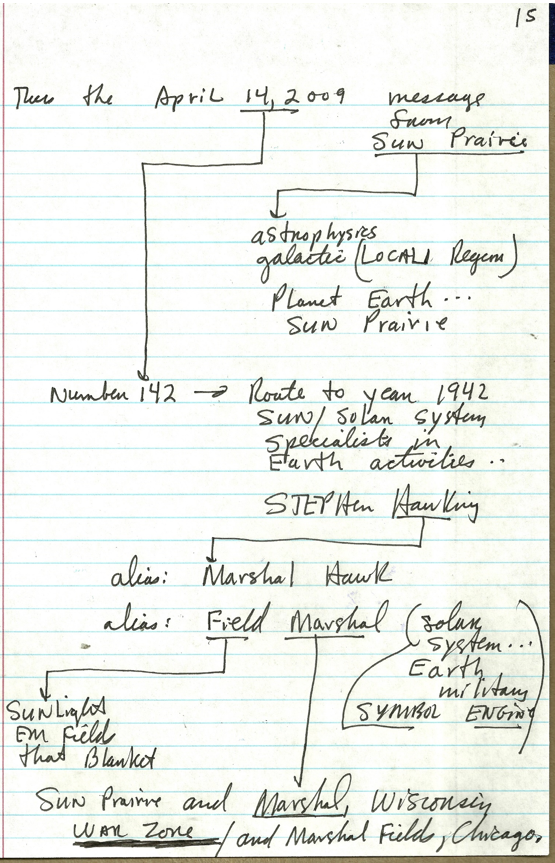 15
Thus the April 14, 2009 message
from
Sun Prairie
astrophysics
galactic (LOCAL1 Region)
Planet Earth ...
Sun Prairie
Number 142 → Route to year 1942
SUN/Solar System
specialists in
Earth activities ..
STEPHen Hawking
alias: Marshal Hawk
alias: Field Marshal (solar
system...
Earth
military
SYMBOL ENGINE)
SunLight
EM Field
that Blanket
Sun Prairie and Marshal, Wisconsin
WAR ZONE / and Marshal Fields, Chicago.